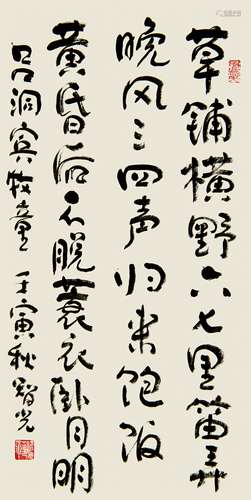 草铺横野六七里笛弄
晚风三四声归来饱饭
黄昏后不脱蓑衣卧月明
吕洞宾牧童 壬寅秋智光